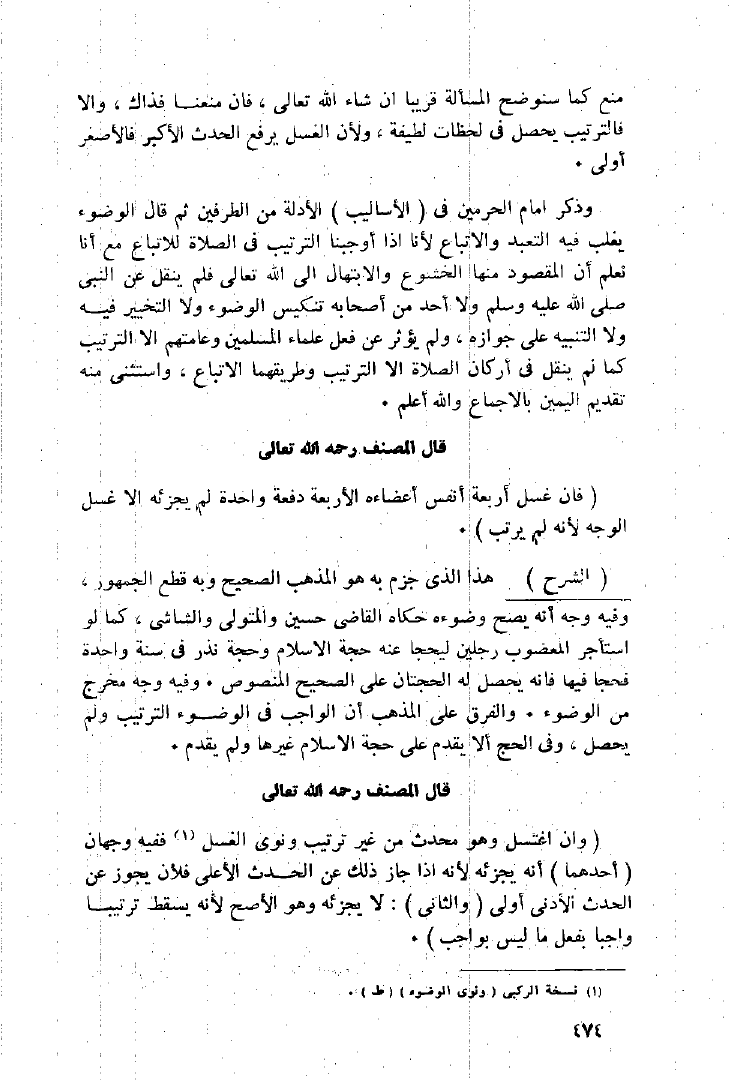 منع كما سنوضح المسألة قريبا ان شاء الله تعالى ، فان منعنـا فذاك ، والا
فالترتيب يحصل فى لحظات لطيفة ، ولأن الغسل يرفع الحدث الأكبر فالأصغر
أولى •
وذكر امام الحرمين فى ( الأساليب ) الأدلة من الطرفين ثم قال الوضوء
يغلب فيه التعبد والاتباع لأنا اذا أوجبنا الترتيب فى الصلاة للاتباع مع أنا
نعلم أن المقصود منها الخشوع والابتهال الى الله تعالى فلم ينقل عن النبى
صلى الله عليه وسلم ولا أحد من أصحابه تنكيس الوضوء ولا التخيير فيـه
ولا التنبيه على جوازه ، ولم يؤثر عن فعل علماء المسلمين وعامتهم الا الترتيب
كما لم ينقل فى أركان الصلاة الا الترتيب وطريقهما الاتباع ، واستثنى منه
تقديم اليمين بالاجماع والله أعلم •
قال المصنف رحمه الله تعالى
( فان غسل أربعة أنفس أعضاءه الأربعة دفعة واحدة لم يجزئه الا غسل
الوجه لأنه لم يرتب ) •
( الشرح ) هذا الذى جزم به هو المذهب الصحيح وبه قطع الجمهور ،
وفيه وجه أنه يصح وضوءه حكاه القاضى حسين والمتولى والشاشى ، كما لو
استأجر المعضوب رجلين ليحجا عنه حجة الاسلام وحجة نذر فى سنة واحدة
فحجا فيها فانه يحصل له الحجتان على الصحيح المنصوص • وفيه وجه مخرج
من الوضوء • والفرق على المذهب أن الواجب فى الوضـوء الترتيب ولم
يحصل ، وفى الحج ألا يقدم على حجة الاسلام غيرها ولم يقدم •
قال المصنف رحمه الله تعالى
( وان اغتسل وهو محدث من غير ترتيب ونوى الغسل (١) ففيه وجهان
( أحدهما ) أنه يجزئه لأنه اذا جاز ذلك عن الحـدث الأعلى فلأن يجوز عن
الحدث الأدنى أولى ( والثانى ) : لا يجزئه وهو الأصح لأنه يسقط ترتيبـا
واجبا بفعل ما ليس بواجب ) •
(١) نسخة الركبى ( ونوى الوضوء ) ( ط ) •
٤٧٤